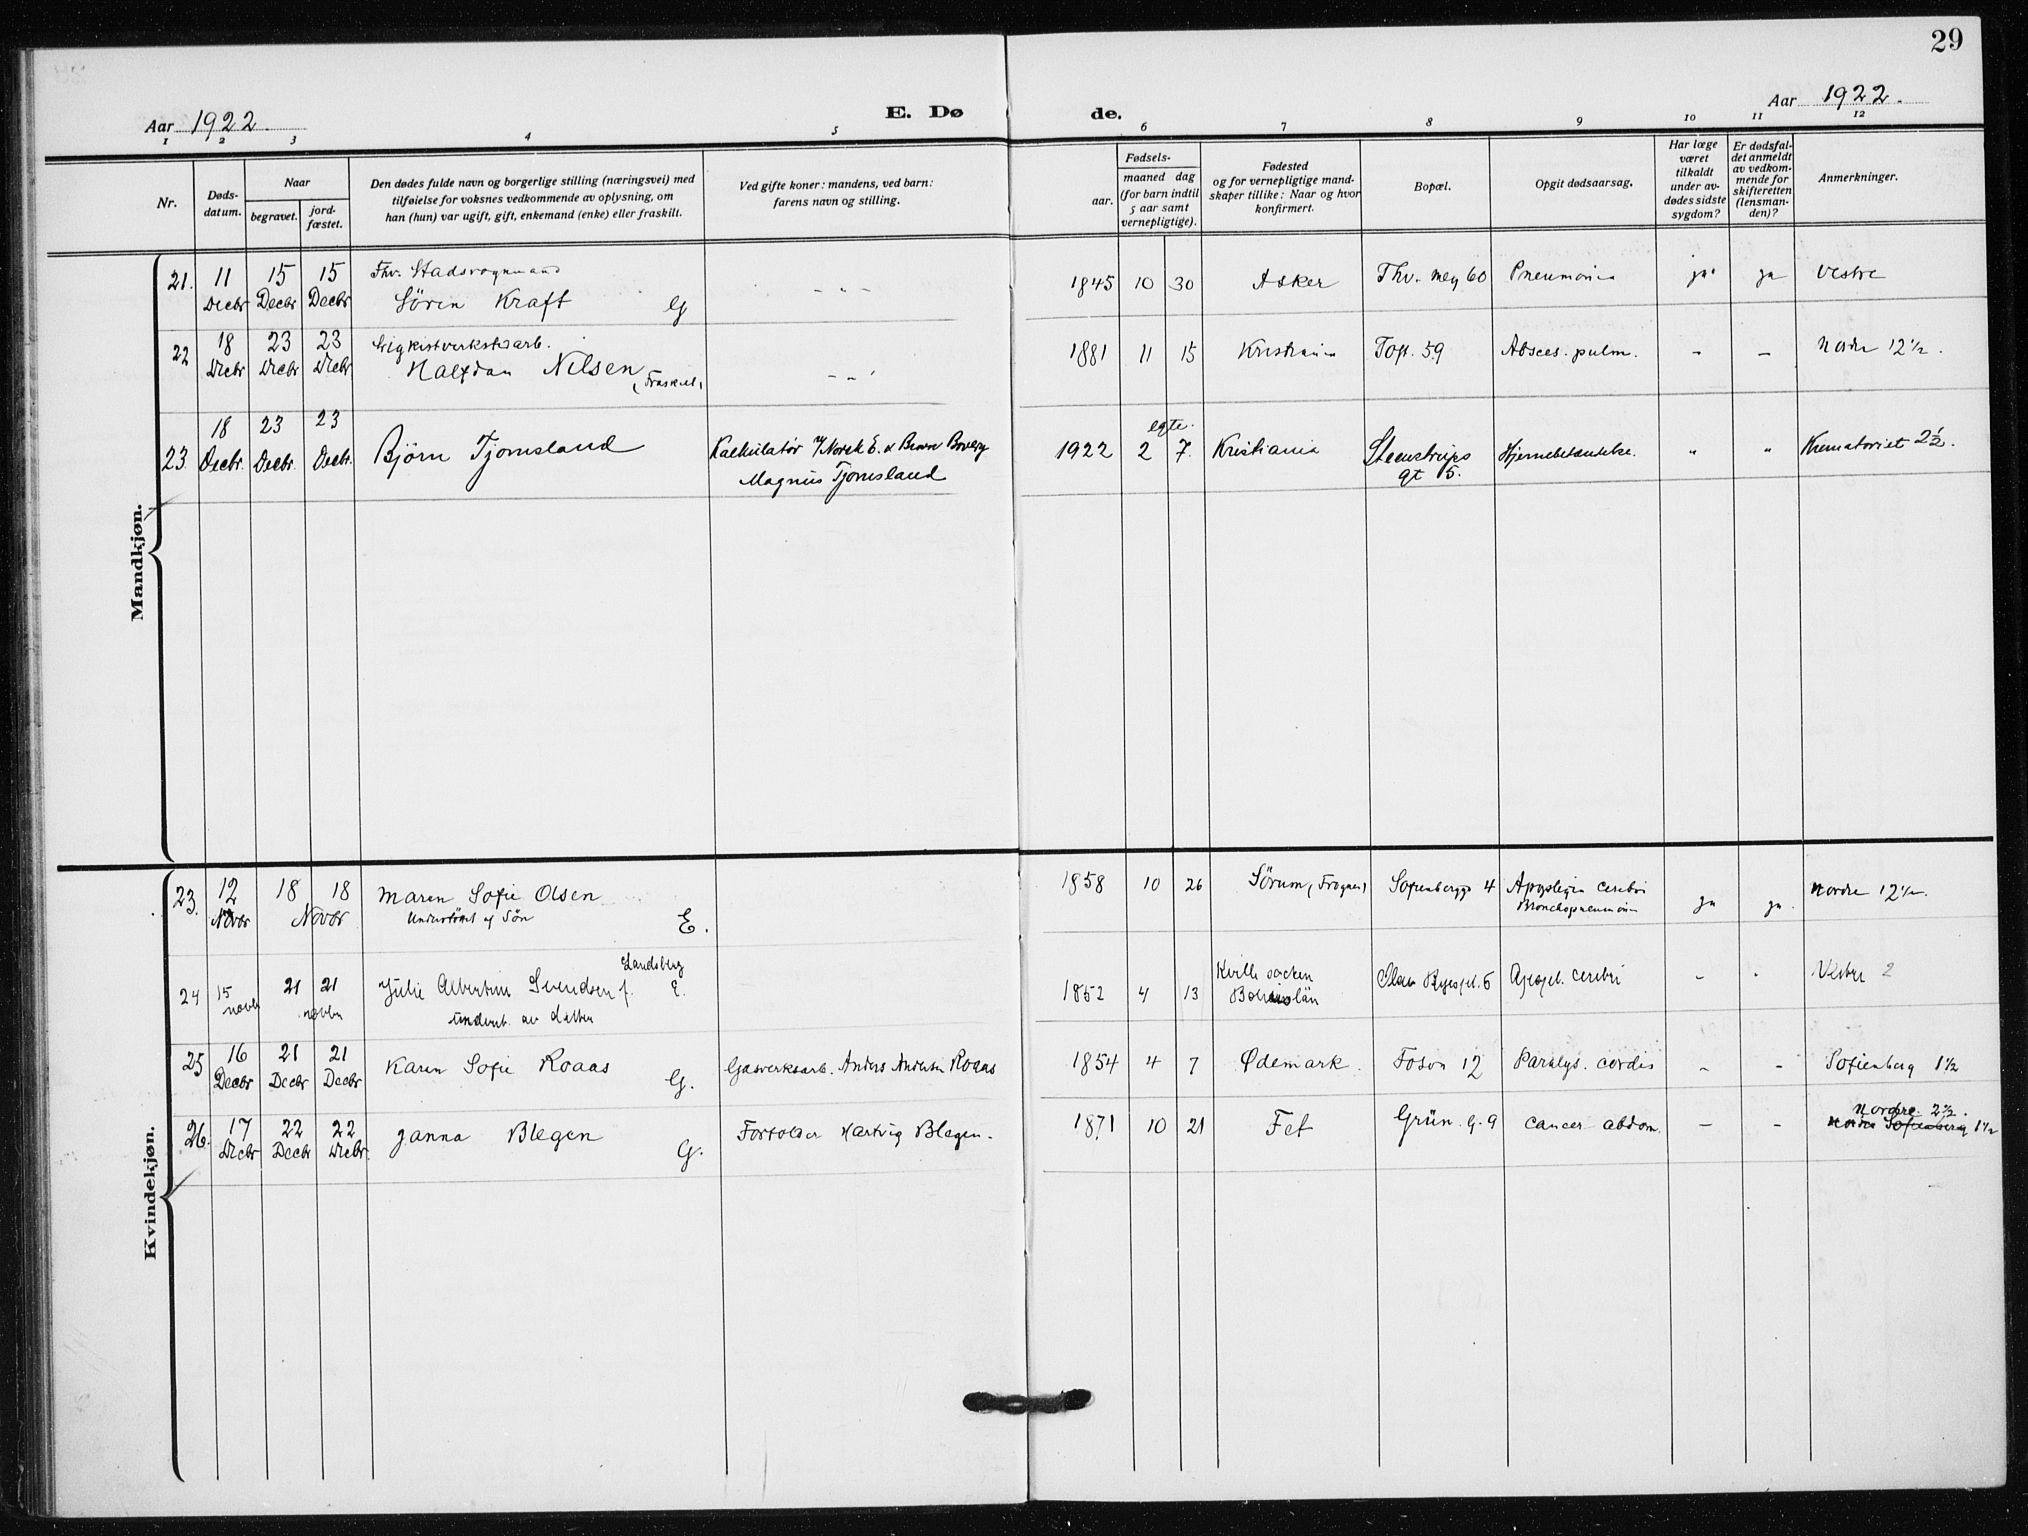 29
Aar 1922.
E. Dø
de.
Aar 1922.
1 2 3 4 5 6 7 8 9 10 11 12
Nr.
Døds-
datum.
Naar
begravet.
jord-
fæstet.
Den dødes fulde navn og borgerlige stilling (næringsvei) med
tilføielse for voksnes vedkommende av oplysning, om
han (hun) var ugift, gift, enkemand (enke) eller fraskilt.
Ved gifte koner: mandens, ved barn:
farens navn og stilling.
Fødsels-
aar.
maaned dag
(for barn indtil
5 aar samt
vernepligtige).
Fødested
og for vernepligtige mand-
skaper tillike: Naar og hvor
konfirmert.
Bopæl.
Opgit dødsaarsag.
Har læge
været
tilkaldt
under av-
dødes sidste
sygdom?
Er dødsfal-
det anmeldt
av vedkom-
mende for
skifteretten
(lensman-
den)?
Anmerkninger.
Mandkjøn.
21. 11 15 15 Fhv. Stadsvognmand
Decbr Decbr Decbr Søren Kraft G - " - 1845 10 30 Asker Thv. mey 60 Pneumonia ja ja Vestre
22 18 23 23 Ligkistverkstarb.
Decbr Decbr Decbr Halfdan Nilsen (Fraskilt) - " - 1881 11 15 Kristiania Toft. 59 Absces. pulm. - - Nordre 12 1/2.
23. 18 23 23
Decbr. Decbr. Decbr. Bjørn Tjomsland Kalkulatør v/ Norsk E. & Brown Boveri
Magnus Tjomsland
egte.
1922 2 7. Kristiania Steenstrups
gt 15. Hjernebetændelse. " " Krematoriet 2 1/2.
Kvindekjøn.
23. 12 18 18 Maren Sofie Olsen
Novbr Novbr Understøttet af Søn E. 1858 10 26 Sørum (Frogner) Sofienberggt 4 Apoplegia cerebri
Bronchopneumoni ja ja. Nordre 12 1/2.
24 15 21 21 Julie Albertine Svendsen f. Landsberg E.
novbr novbr underst. av datter 1852 4 13 Kville socken
Bohuslän Olav Ryespl. 5 Apopl. cerebri - " Vestre 2
25 16 21 21 Karen Sofie Roaas G. Gasverksarb. Anders Andersen Roaas 1854 4 7 Ødemark. Fosvn 12 Paralys. cordis - - Sofienberg 1 1/2
Decbr Decbr Decbr
26. 17 22 22 Janna Blegen G. Forfolder Hartvig Blegen. 1871 10 21 Fet Grün. g. 9 Cancer abdom. - - Nordre 2 1/2.
Decbr Decbr Decbr. Nordre Sofienberg 1 1/2